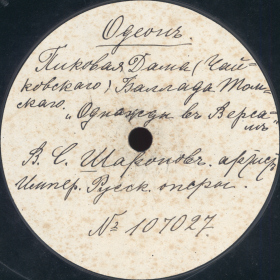 Одеонъ.
Пиковая Дама (Чай-
ковскаго) Баллада Том-
скаго.
„Однажды въ Верса-
лѣ"
В. С. Шароновъ. артист
Импер. Русск. оперы.
№ 107027